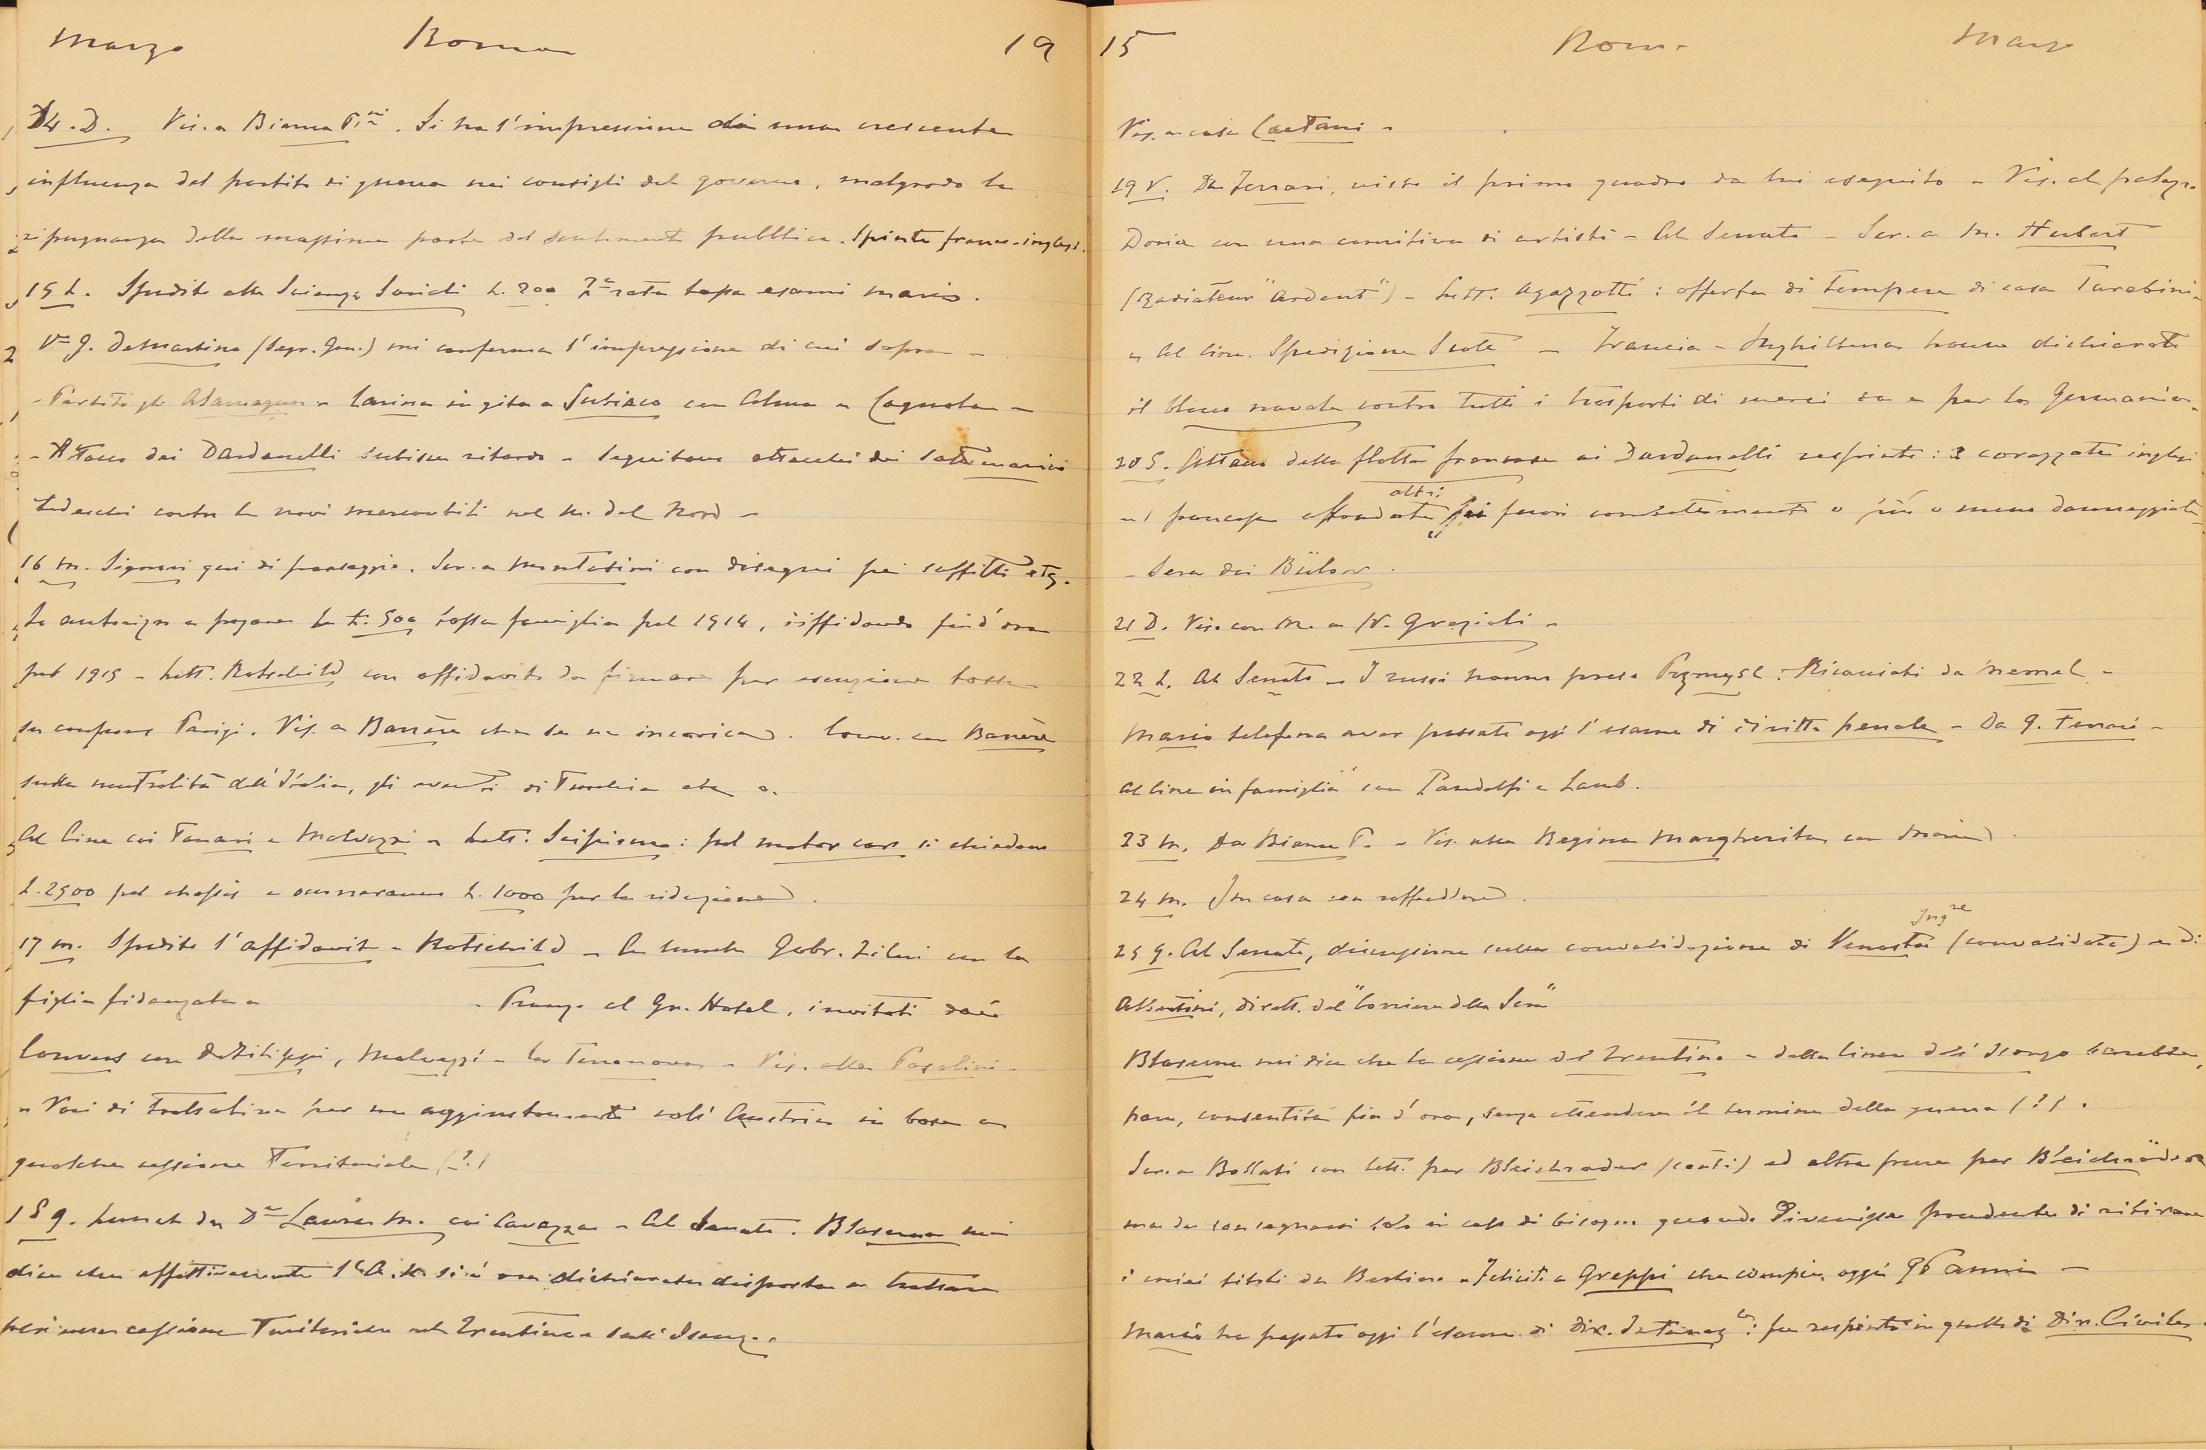 Marzo Roma 19
14. D. Vis. a Bianca P.ni. Si ha l'impressione di una crescente
influenza del partito di guerra nei consigli del governo, malgrado la
ripugnanza della massima parte del sentimento pubblico. Spinte franco-inglesi.
15 L. Spedito alla Scienze Sociali L. 200 2a rata tassa esami Mario.
G. DeMartino (Segr. Gen.) mi conferma l'impressione di cui sopra –
– Partiti gli – Carina in gita a Subiaco con Alma e Cagnola –
– Attacco dei Dardanelli subisce ritardo – Seguitano attacchi dei sottomarini
tedeschi contro le navi mercantili nel M. del Nord –
16 M. Signori qui di passaggio. Scr. a Montesini con disegni pei soffitti etc.
Lo autorizzo a pagare le L. 500 tassa famiglia pel 1914, diffidando fin d'ora
pel 1915 – Lett. Rotschild con affidavit da firmare per esenzione tassa
su coupons Parigi. Vis. a Barrère che se ne incarica. Conv. con Barrère
sulla neutralità dell'Italia, gli eventi di Turchia etc.
Al Cine coi Tanari e Malvezzi – Lett. Scipione: pel motor cars si chiedono
L. 2500 pel chassis e L. 1000 per la riduzione.
17 M. Spedito l'affidavit a Rotschild – A lunch Gobr. Zileri con la
figlia fidanzata – – Pranzo al Gr. Hotel, invitati dai
Convers con DeFilippi, Malvezzi – la Terranova – Vis. alla Pasolini –
– Voci di trattative per un aggiustamento coll'Austria in base a
qualche cessione territoriale (?)
18 G. Lunch da Da Laura M. coi Cavazza – Al Senato. Blaserna mi
dice che effettivamente l'A. U. si è ora dichiarata disposta a trattare
per una cessione territoriale nel Trentino e sull'Isonzo.
15 Roma Marzo
Vis. a casa Caetani –
19 V. Da Ferrari, visto il primo quadro da lui eseguito – Vis. al palazzo
Doria con una comitiva di artisti – Al Senato – Scr. a M. Hubert
(Radiateur "Ardent") – Lett. Agazzotti: offerta di tempera di casa Tarabini –
– Al Cine. Spedizione Scott – Francia – Inghilterra hanno dichiarato
il blocco navale contro tutti i trasporti di merci da e per la Germania –
20 S. Attacco della flotta francese ai Dardanelli respinto: 3 corazzate inglesi
altri
e 1 francese affondate, sei fuori combattimento o più o meno danneggiate
– Sera dai Bülow.
21 D. Vis. con M. a N. Grazioli –
22 L. Al Senato – I russi hanno preso Przmysl. Ricacciati da Memel –
Mario telefona aver passato oggi l'esame di diritto penale – Da G. Ferrari –
al Cine in famiglia con Pandolfi e Lamb.
23 M. Da Bianca P. – Vis. alla Regina Margherita con Maria.
24 M. In casa con raffreddore.
Ing.re
25 G. Al Senato, discussione sulla convalidazione di Venosta (convalidata) e di
Albertini, dirett. del "Corriere della Sera"
Blaserna mi dice che la cessione del Trentino e della linea dell'Isonzo sarebbe,
pare, consentita fin d'ora, senza attendere il termine della guerra (?).
Scr. a Bollati con lett. per Bleichröder (conti) ed altra pure per Bleichröder
ma da consegnarsi solo in caso di bisogno quando divenisse prudente di ritirare
i miei titoli da Berlino – Felicit. a Greppi che compie oggi 96 anni –
Mario ha passato oggi l'esame di Dir. Internaz.le: fu respinto in quello di Dir. Civile.